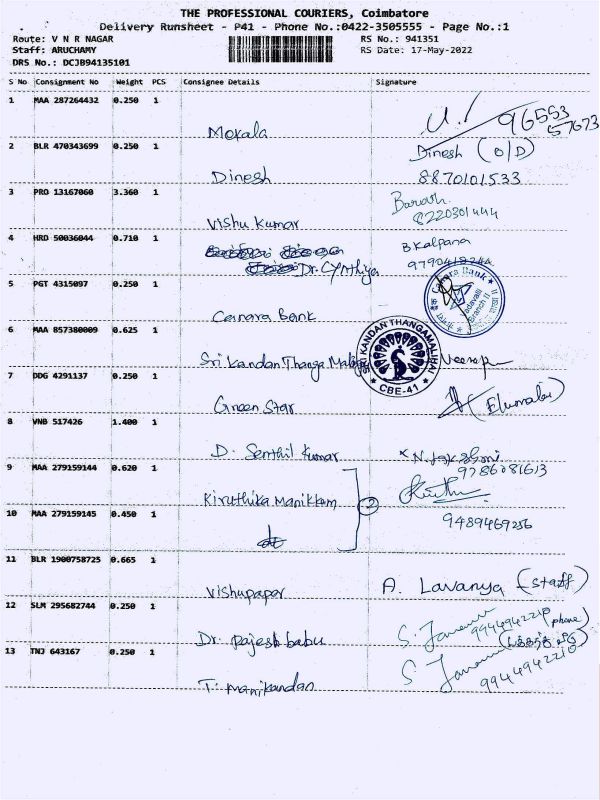 THE PROFESSIONAL COURIERS, Coimbatore
Delivery Runsheet - P41 - Phone No.:0422-3505555 - Page No.:1
Route: V N R NAGAR RS No.: 941351
Staff: ARUCHAMY RS Date: 17-May-2022
DRS No.: DCJB94135101
S No Consignment No Weight PCS Consignee Details Signature
1 MAA 287264432 0.250 1
Mekala 96553 57673
2 BLR 470343699 0.250 1 Dinesh (O/D)
Dinesh 8870101533
3 PRO 13167060 3.360 1 Barath
Vishu Kumar 8220301444
4 HRD 50036044 0.710 1 B Kalpana
Dr. Cynthiya
5 PGT 4315097 0.250 1 Canara Bank
Canara Bank
6 MAA 857380009 0.625 1 SRI KANDAN THANGAMALIGAI CBE-41
Sri Kandan Thanga
7 DDG 4291137 0.250 1
Green Star
8 VNB 517426 1.400 1
D. Senthil Kumar
9 MAA 279159144 0.620 1 9786081613
Kiruthika Manikkam 2
10 MAA 279159145 0.450 1 9489469256
11 BLR 1900758725 0.665 1
Vishupapar A. Lavanya (Staff)
12 SLM 295682744 0.250 1 9944942210 (phone)
Dr. Rajesh babu
13 TNJ 643167 0.250 1 9944942210
T. Manikandan